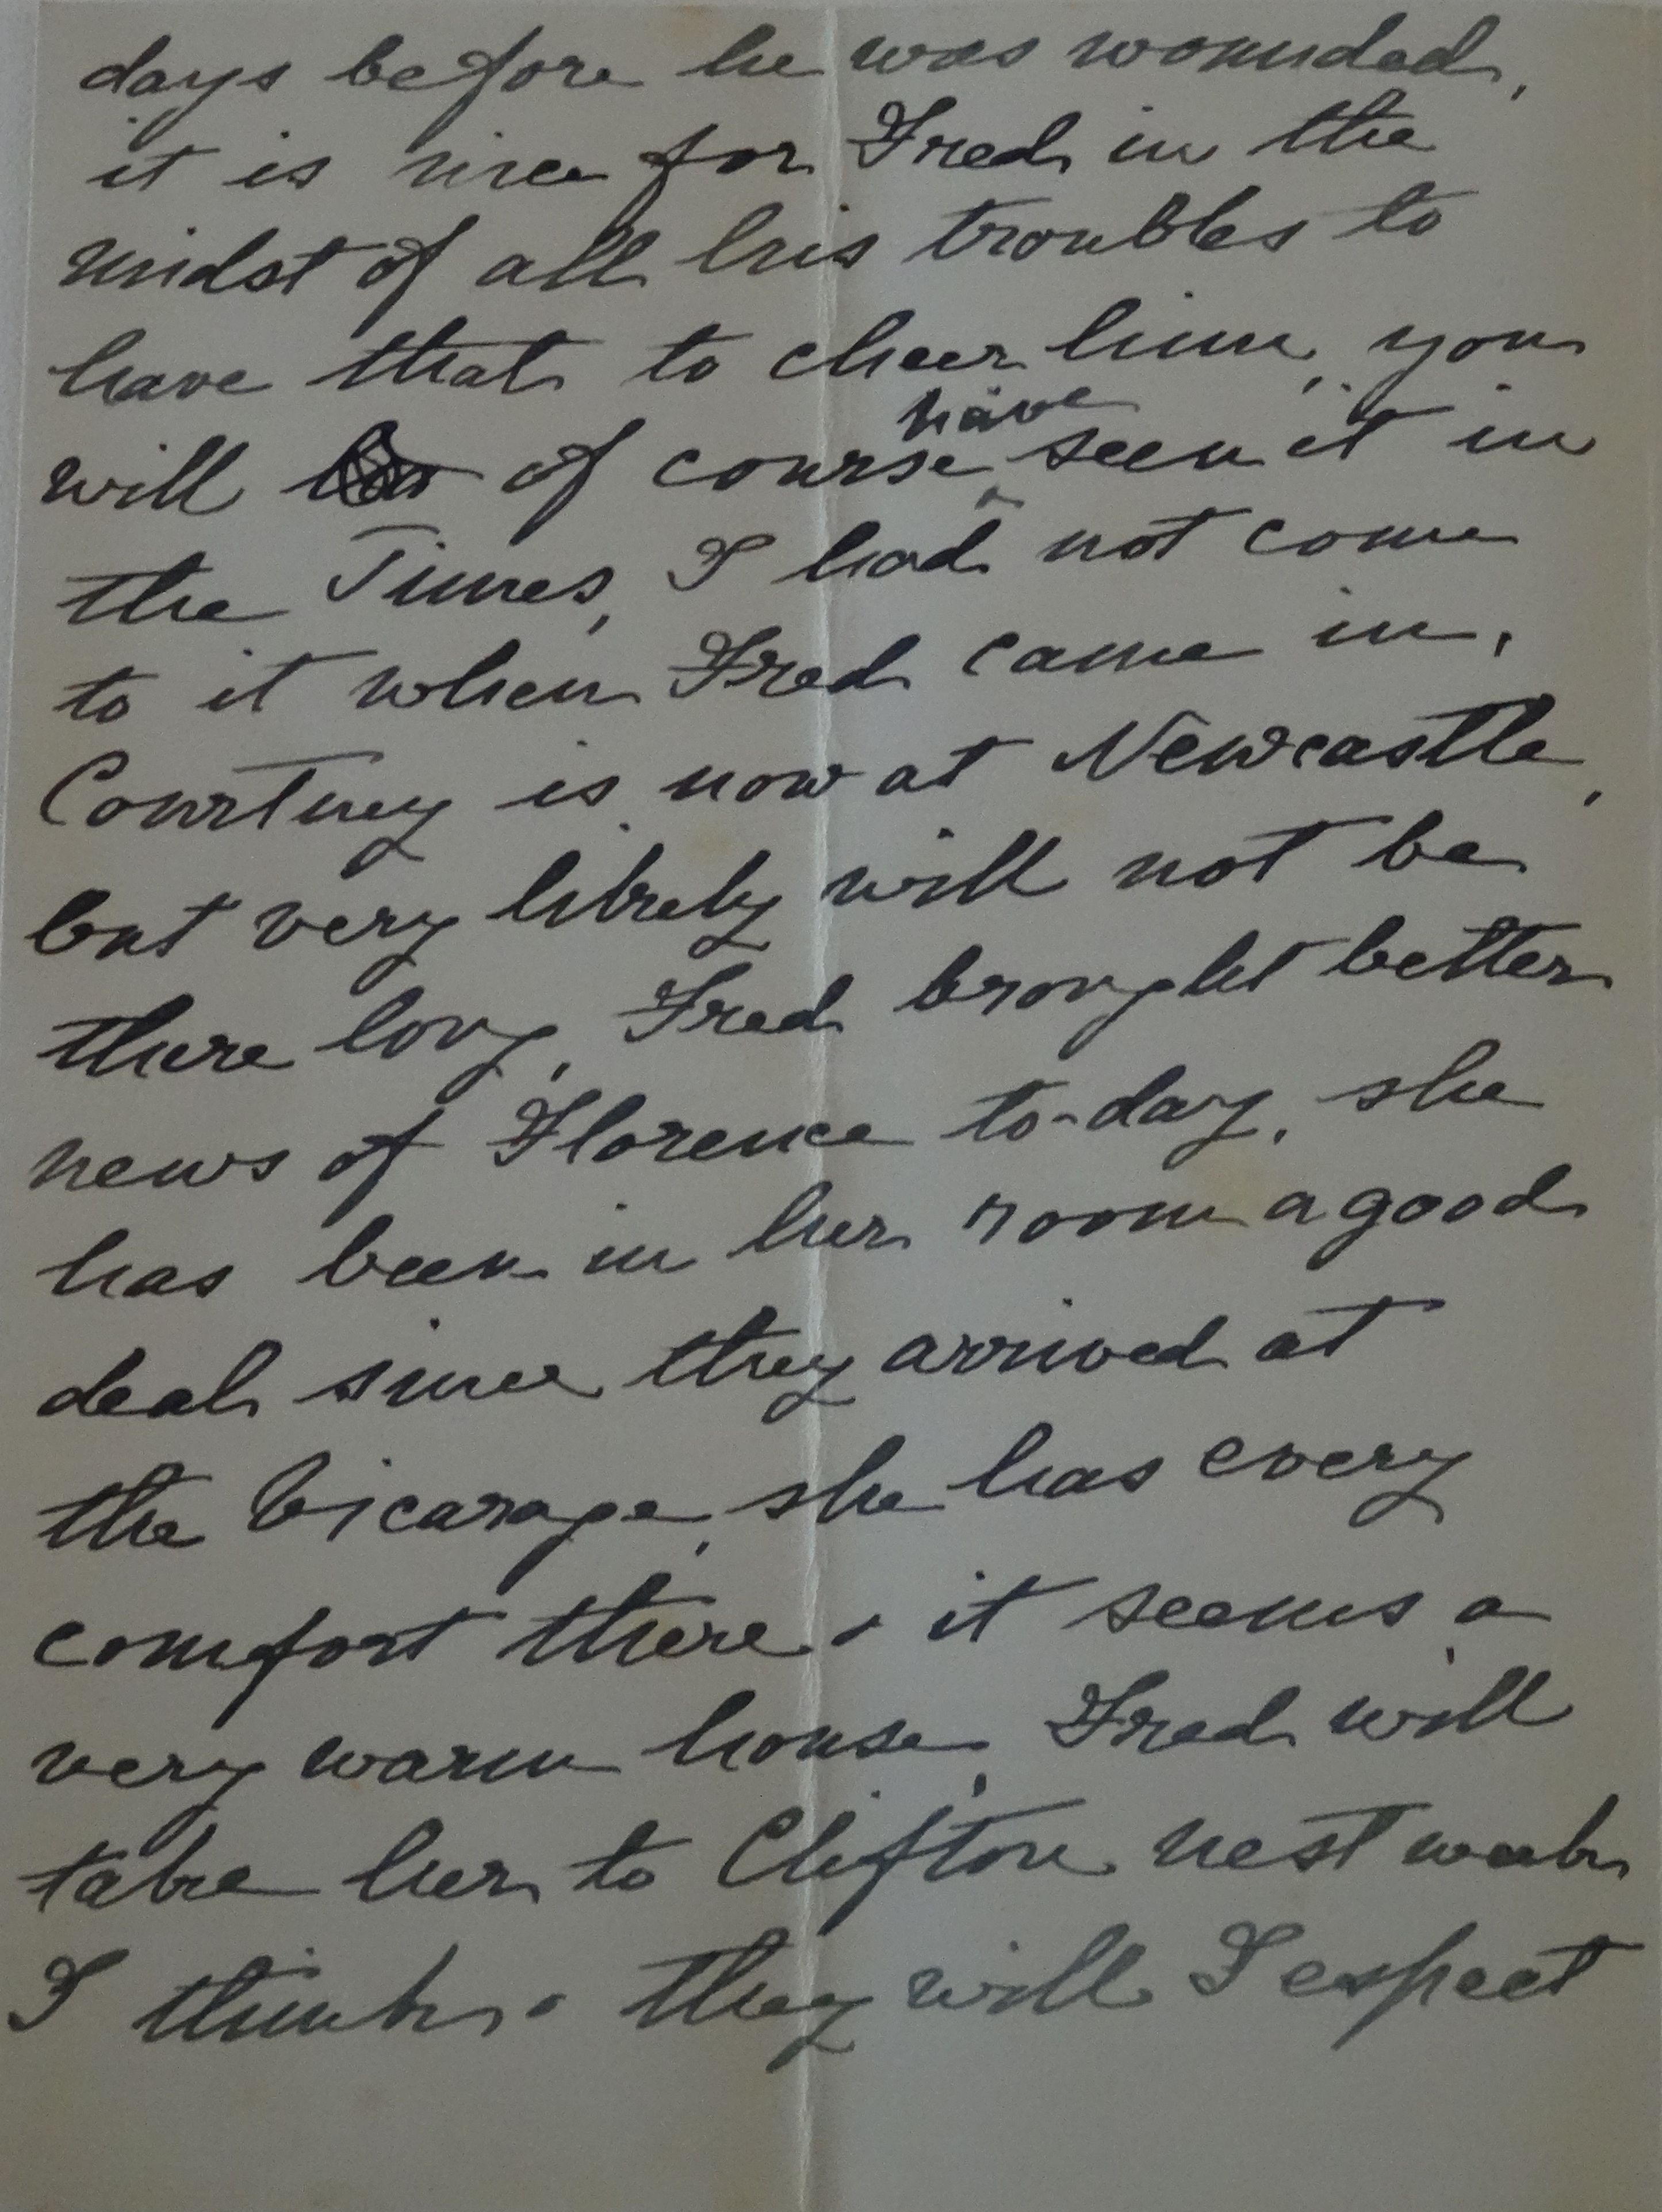 days before he was wounded,
it is nice for Fred in the
midst of all his troubles to
have that to cheer him, you
will of course have seen it in
the Times, I had not come
to it when Fred came in.
Courtney is now at Newcastle,
but very likely will not be
there long, Fred brought better
news of Florence to-day, she
has been in her room a good
deal since they arrived at
the Vicarage, she has every
comfort there & it seems a
very warm house, Fred will
take her to Clifton next week
I think & they will I expect